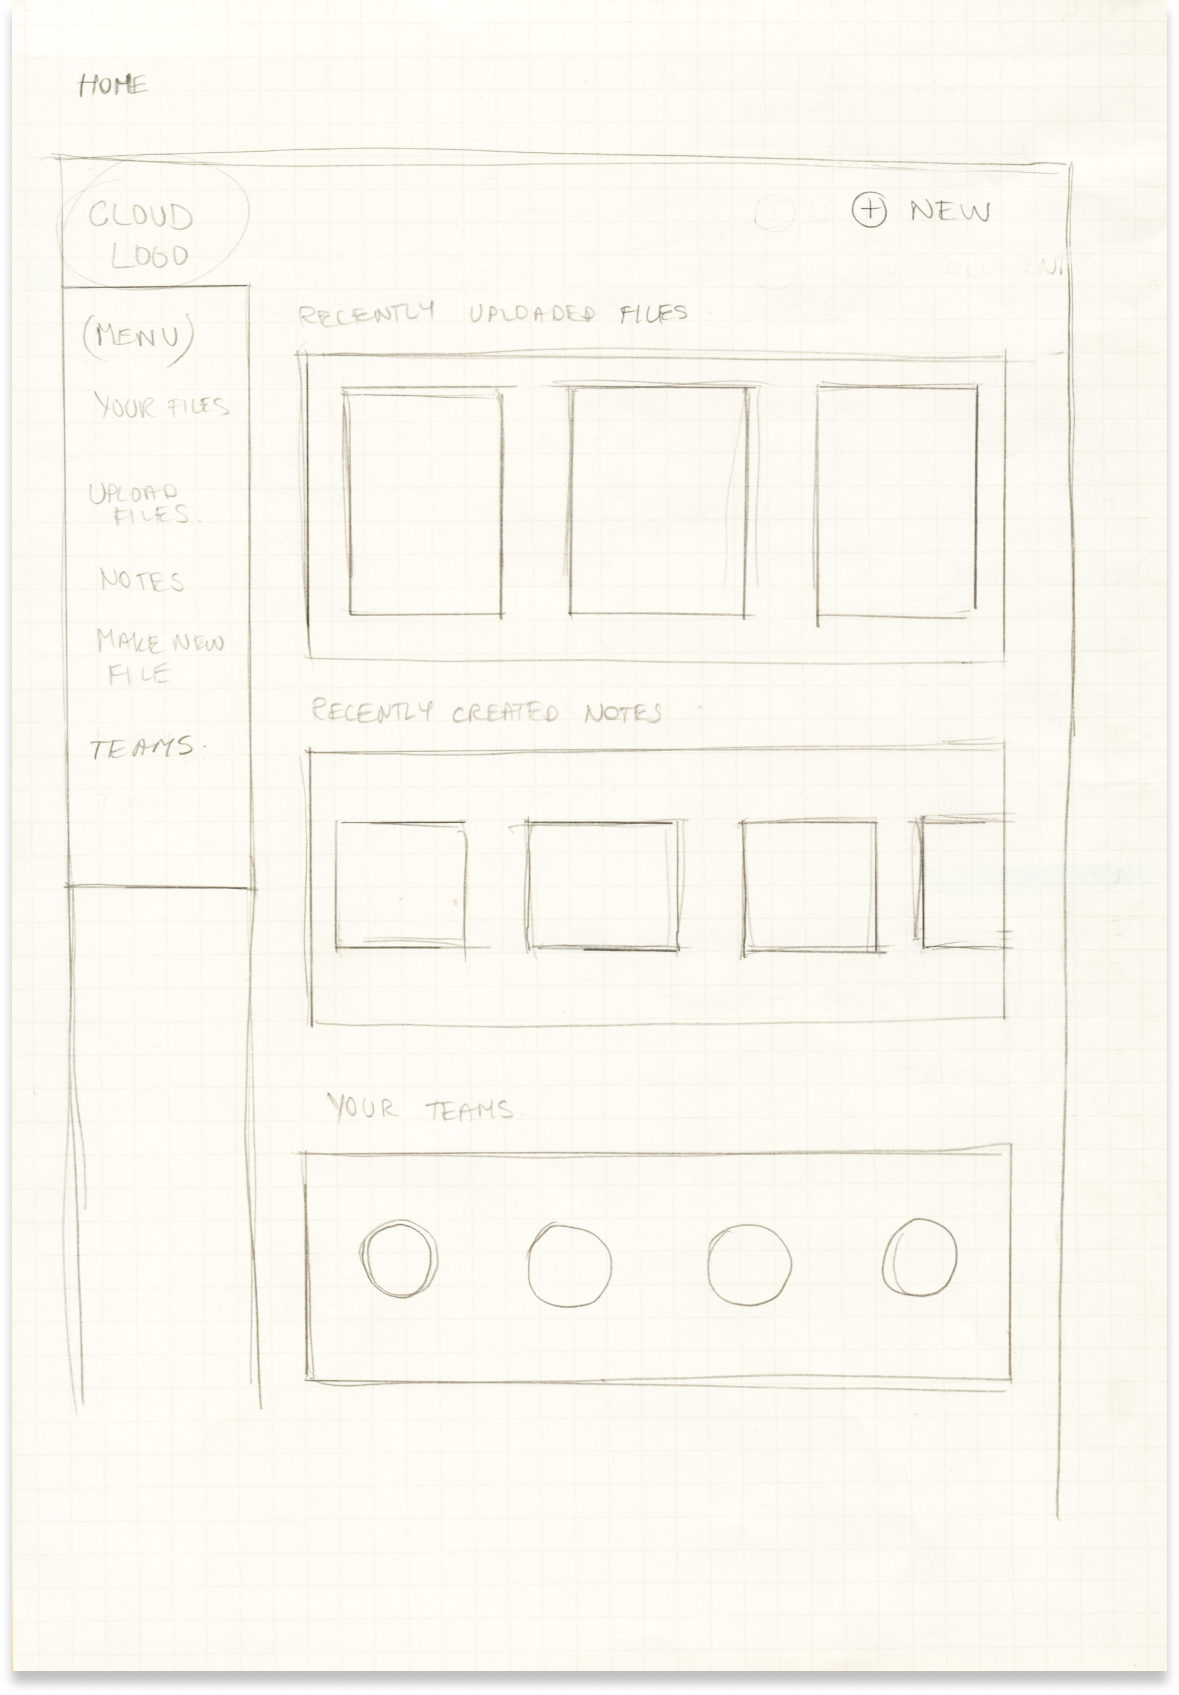 HOME
CLOUD
LOGO
+ NEW
(MENU)
YOUR FILES
UPLOAD
FILES.
NOTES
MAKE NEW
FILE
TEAMS.
RECENTLY UPLOADED FILES
RECENTLY CREATED NOTES
YOUR TEAMS